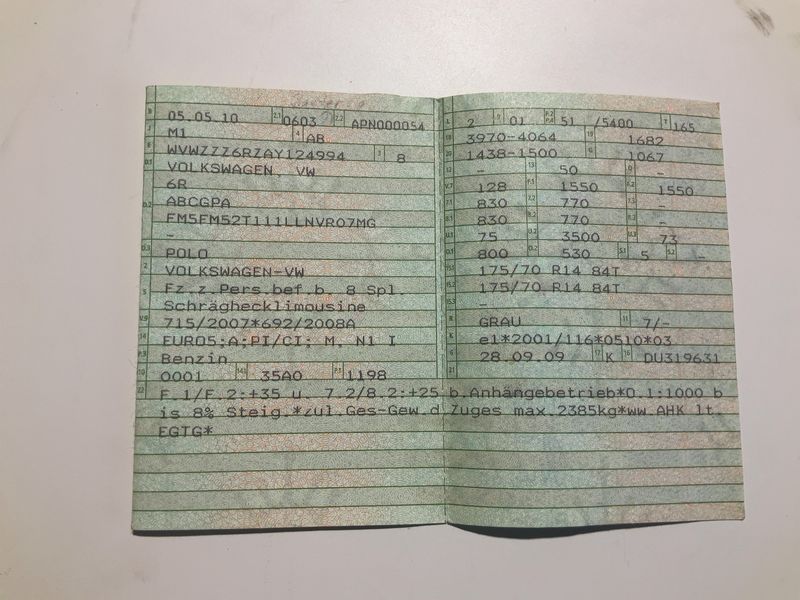 B 05.05.10 2.1 0603 2.2 APN000054
J M1 4 AB
E WVWZZZ6RZAY124994 3 8
D.1 VOLKSWAGEN, VW
6R
D.2 ABCGPA
FM5FM52T111LLNVR07MG
-
D.3 POLO
2 VOLKSWAGEN-VW
5 Fz.z.Pers.bef.b. 8 Spl.
Schräghecklimousine
V.9 715/2007*692/2008A
14 EURO5;A;PI/CI; M, N1 I
P.3 Benzin
10 0001 14.1 35A0 P.1 1198
L 2 9 01 P.2 P.4 51 /5400 T 165
18 3970-4064 19 1682
20 1438-1500 G 1067
12 - 13 50 Q -
V.7 128 F.1 1550 F.2 1550
7.1 830 7.2 770 7.3 -
8.1 830 8.2 770 8.3 -
U.1 75 U.2 3500 U.3 73
O.1 800 O.2 530 S.1 5 S.2 -
15.1 175/70 R14 84T
15.2 175/70 R14 84T
15.3 -
R GRAU 11 7/-
K e1*2001/116*0510*03
6 28.09.09 17 K 16 DU319631
21
22 F.1/F.2:+35 u. 7.2/8.2:+25 b.Anhängebetrieb*O.1:1000 b
is 8% Steig.*zul.Ges-Gew.d.Zuges max.2385kg*ww.AHK lt.
EGTG*